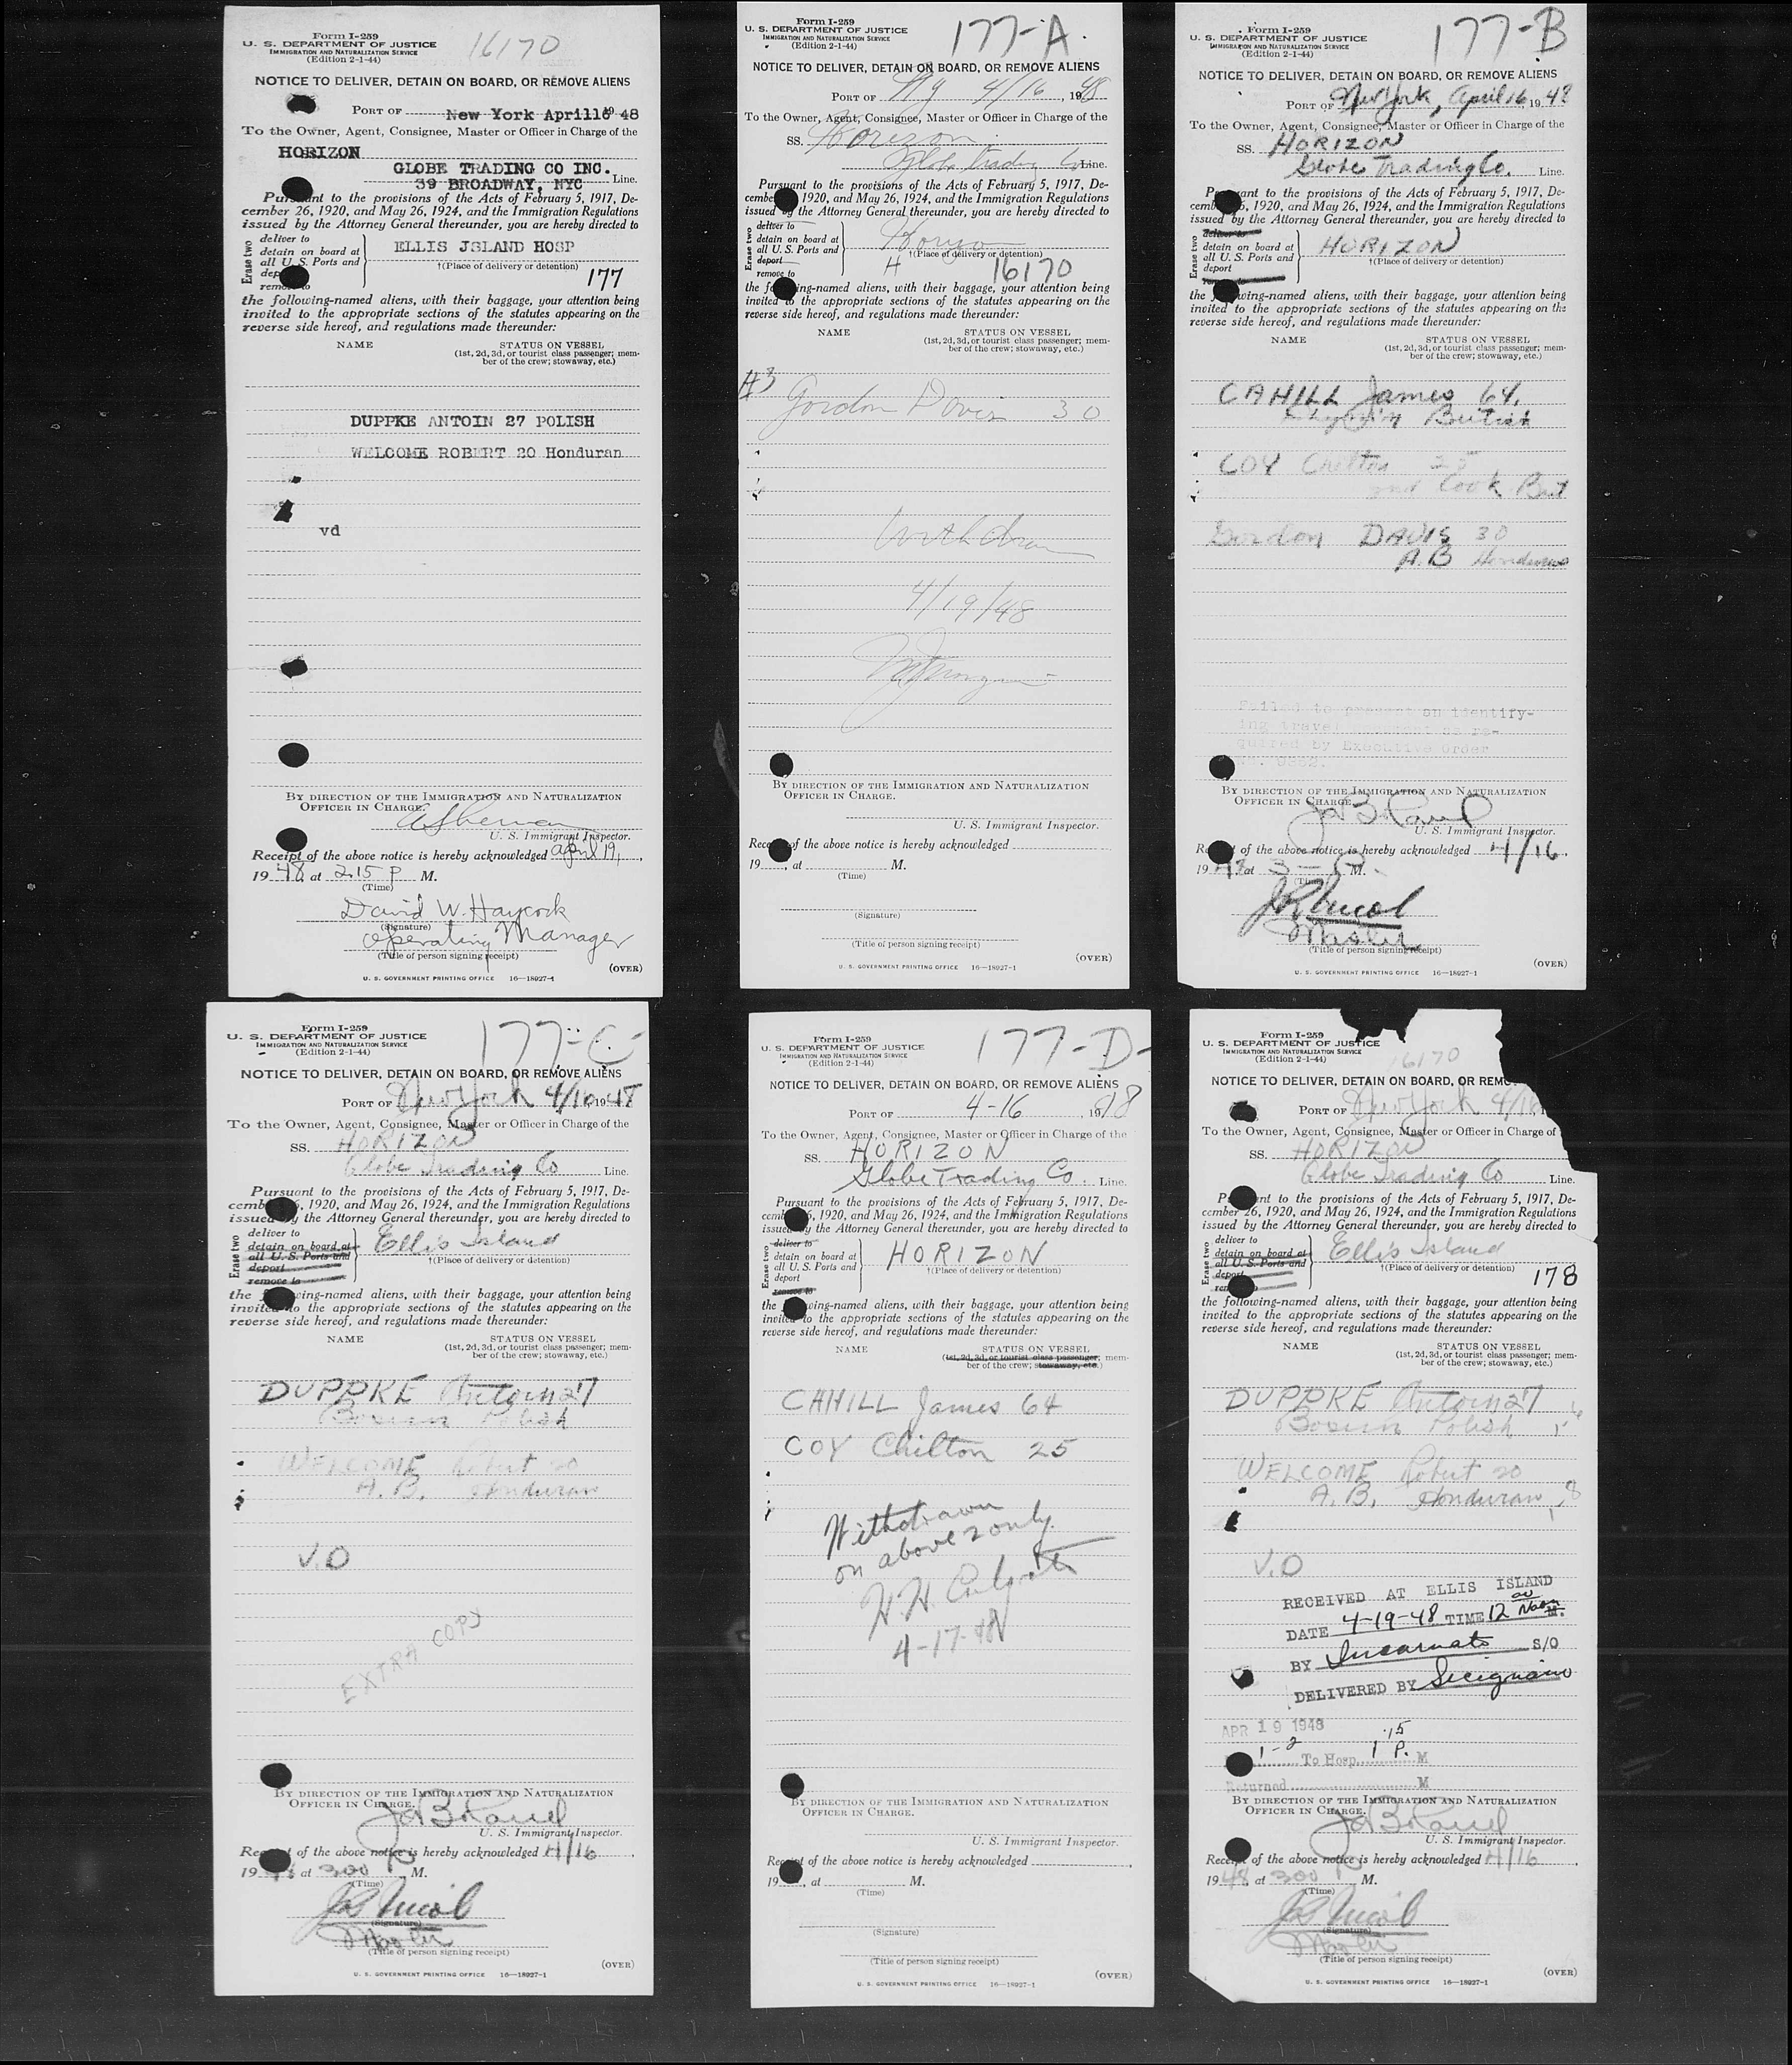 Form I-259
16170
U. S. DEPARTMENT OF JUSTICE
IMMIGRATION AND NATURALIZATION SERVICE
(Edition 2-1-44)
NOTICE TO DELIVER, DETAIN ON BOARD, OR REMOVE ALIENS
PORT OF New York April 16 1948
To the Owner, Agent, Consignee, Master or Officer in Charge of the
HORIZON
GLOBE TRADING CO INC.
39 BROADWAY, NYC Line.
Pursuant to the provisions of the Acts of February 5, 1917, De-
cember 26, 1920, and May 26, 1924, and the Immigration Regulations
issued by the Attorney General thereunder, you are hereby directed to
Erase two
deliver to
detain on board at
all U. S. Ports and
deport
remove to
ELLIS JSLAND HOSP
†(Place of delivery or detention)
177
the following-named aliens, with their baggage, your attention being
invited to the appropriate sections of the statutes appearing on the
reverse side hereof, and regulations made thereunder:
NAME STATUS ON VESSEL
(1st, 2d, 3d, or tourist class passenger; mem-
ber of the crew; stowaway, etc.)
DUPPKE ANTOIN 27 POLISH
WELCOME ROBERT 20 Honduran
vd
BY DIRECTION OF THE IMMIGRATION AND NATURALIZATION
OFFICER IN CHARGE.
U. S. Immigrant Inspector.
Receipt of the above notice is hereby acknowledged April 19,
1948, at 2.15 P M.
(Time)
David W. Haycock
(Signature)
Operating Manager
(Title of person signing receipt)
(OVER)
U. S. GOVERNMENT PRINTING OFFICE 16—18927-1
Form I-259
177-A.
U. S. DEPARTMENT OF JUSTICE
IMMIGRATION AND NATURALIZATION SERVICE
(Edition 2-1-44)
NOTICE TO DELIVER, DETAIN ON BOARD, OR REMOVE ALIENS
PORT OF NY 4/16, 1948
To the Owner, Agent, Consignee, Master or Officer in Charge of the
SS. Horizon
Globe Trading Co Line.
Pursuant to the provisions of the Acts of February 5, 1917, De-
cember 26, 1920, and May 26, 1924, and the Immigration Regulations
issued by the Attorney General thereunder, you are hereby directed to
Erase two
deliver to
detain on board at
all U. S. Ports and
deport
remove to
Horizon
†(Place of delivery or detention)
H 16170
the following-named aliens, with their baggage, your attention being
invited to the appropriate sections of the statutes appearing on the
reverse side hereof, and regulations made thereunder:
NAME STATUS ON VESSEL
(1st, 2d, 3d, or tourist class passenger; mem-
ber of the crew; stowaway, etc.)
#3
Gordon Davis 30
Withdrawn
4/19/48
BY DIRECTION OF THE IMMIGRATION AND NATURALIZATION
OFFICER IN CHARGE.
U. S. Immigrant Inspector.
Receipt of the above notice is hereby acknowledged
19 , at M.
(Time)
(Signature)
(Title of person signing receipt)
(OVER)
U. S. GOVERNMENT PRINTING OFFICE 16—18927-1
Form I-259
177-B
U. S. DEPARTMENT OF JUSTICE
IMMIGRATION AND NATURALIZATION SERVICE
(Edition 2-1-44)
NOTICE TO DELIVER, DETAIN ON BOARD, OR REMOVE ALIENS
PORT OF New York, April 16 1948
To the Owner, Agent, Consignee, Master or Officer in Charge of the
SS. HORIZON
Globe Trading Co. Line.
Pursuant to the provisions of the Acts of February 5, 1917, De-
cember 26, 1920, and May 26, 1924, and the Immigration Regulations
issued by the Attorney General thereunder, you are hereby directed to
Erase two
deliver to
detain on board at
all U. S. Ports and
deport
remove to
HORIZON
†(Place of delivery or detention)
the following-named aliens, with their baggage, your attention being
invited to the appropriate sections of the statutes appearing on the
reverse side hereof, and regulations made thereunder:
NAME STATUS ON VESSEL
(1st, 2d, 3d, or tourist class passenger; mem-
ber of the crew; stowaway, etc.)
CAHILL James 64,
British
COY Chilton 25
2nd Cook Brit
Gordon DAVIS 30
A.B Honduras
Failed to present an identify-
ing travel document as re-
quired by Executive Order
BY DIRECTION OF THE IMMIGRATION AND NATURALIZATION
OFFICER IN CHARGE.
U. S. Immigrant Inspector.
Receipt of the above notice is hereby acknowledged 4/16,
1948 at 3 — P. M.
(Time)
(Signature)
Master
(Title of person signing receipt)
(OVER)
U. S. GOVERNMENT PRINTING OFFICE 16—18927-1
Form I-259
177-C
U. S. DEPARTMENT OF JUSTICE
IMMIGRATION AND NATURALIZATION SERVICE
(Edition 2-1-44)
NOTICE TO DELIVER, DETAIN ON BOARD, OR REMOVE ALIENS
PORT OF New York 4/16 1948
To the Owner, Agent, Consignee, Master or Officer in Charge of the
SS. HORIZON
Globe Trading Co Line.
Pursuant to the provisions of the Acts of February 5, 1917, De-
cember 26, 1920, and May 26, 1924, and the Immigration Regulations
issued by the Attorney General thereunder, you are hereby directed to
Erase two
deliver to
detain on board at
all U. S. Ports and
deport
remove to
Ellis Island
†(Place of delivery or detention)
the following-named aliens, with their baggage, your attention being
invited to the appropriate sections of the statutes appearing on the
reverse side hereof, and regulations made thereunder:
NAME STATUS ON VESSEL
(1st, 2d, 3d, or tourist class passenger; mem-
ber of the crew; stowaway, etc.)
DUPPKE Antoin 27
Bosun Polish
WELCOME Robert 20
A.B. Honduran
V.D
EXTRA COPY
BY DIRECTION OF THE IMMIGRATION AND NATURALIZATION
OFFICER IN CHARGE.
U. S. Immigrant Inspector.
Receipt of the above notice is hereby acknowledged 4/16,
1948 at 300 P M.
(Time)
(Signature)
Master
(Title of person signing receipt)
(OVER)
U. S. GOVERNMENT PRINTING OFFICE 16—18927-1
Form I-259
177-D-
U. S. DEPARTMENT OF JUSTICE
IMMIGRATION AND NATURALIZATION SERVICE
(Edition 2-1-44)
NOTICE TO DELIVER, DETAIN ON BOARD, OR REMOVE ALIENS
PORT OF 4-16, 1948
To the Owner, Agent, Consignee, Master or Officer in Charge of the
SS. HORIZON
Globe Trading Co. Line.
Pursuant to the provisions of the Acts of February 5, 1917, De-
cember 26, 1920, and May 26, 1924, and the Immigration Regulations
issued by the Attorney General thereunder, you are hereby directed to
Erase two
deliver to
detain on board at
all U. S. Ports and
deport
remove to
HORIZON
†(Place of delivery or detention)
the following-named aliens, with their baggage, your attention being
invited to the appropriate sections of the statutes appearing on the
reverse side hereof, and regulations made thereunder:
NAME STATUS ON VESSEL
(1st, 2d, 3d, or tourist class passenger; mem-
ber of the crew; stowaway, etc.)
CAHILL James 64
COY Chilton 25
Withdrawn
on above 2 only.
4-17-48
BY DIRECTION OF THE IMMIGRATION AND NATURALIZATION
OFFICER IN CHARGE.
U. S. Immigrant Inspector.
Receipt of the above notice is hereby acknowledged
19 , at M.
(Time)
(Signature)
(Title of person signing receipt)
(OVER)
U. S. GOVERNMENT PRINTING OFFICE 16—18927-1
Form I-259
U. S. DEPARTMENT OF JUSTICE
IMMIGRATION AND NATURALIZATION SERVICE
(Edition 2-1-44)
16170
NOTICE TO DELIVER, DETAIN ON BOARD, OR REMO
PORT OF New York 4/16
To the Owner, Agent, Consignee, Master or Officer in Charge of
SS. HORIZON
Globe Trading Co Line.
Pursuant to the provisions of the Acts of February 5, 1917, De-
cember 26, 1920, and May 26, 1924, and the Immigration Regulations
issued by the Attorney General thereunder, you are hereby directed to
Erase two
deliver to
detain on board at
all U. S. Ports and
deport
remove to
Ellis Island
†(Place of delivery or detention)
178
the following-named aliens, with their baggage, your attention being
invited to the appropriate sections of the statutes appearing on the
reverse side hereof, and regulations made thereunder:
NAME STATUS ON VESSEL
(1st, 2d, 3d, or tourist class passenger; mem-
ber of the crew; stowaway, etc.)
DUPPKE Antoin 27
Bosun Polish
WELCOME Robert 20
A.B. Honduran
V.D
RECEIVED AT ELLIS ISLAND
DATE 4-19-48 TIME 12 Noon M.
BY Incarnato S/O
DELIVERED BY Sicignano
APR 19 1948
1-2 To Hosp. 1 15 P. M
Returned M
BY DIRECTION OF THE IMMIGRATION AND NATURALIZATION
OFFICER IN CHARGE.
U. S. Immigrant Inspector.
Receipt of the above notice is hereby acknowledged 4/16,
1948, at 300 P M.
(Time)
(Signature)
Master
(Title of person signing receipt)
(OVER)
U. S. GOVERNMENT PRINTING OFFICE 16—18927-1